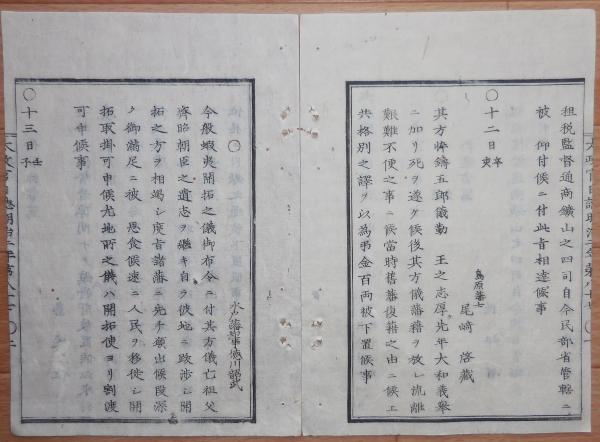 太政官日誌明治二年第八十
租税監督通商鑛山之四司自今民部省管轄ニ
被　仰付候ニ付此旨相達候事
○十二日辛亥
島原藩士
尾﨑啓藏
其方悴鑄五郎儀勤　王之志厚先年大和義擧
ニ加リ死ヲ遂ケ候後其方儀藩籍ヲ放レ流離
艱難不便之事ニ候當時舊藩復籍之由ニ候ヱ
共格別之譯ヲ以為弔金百両被下置候事
○
水戸藩知事徳川昭武
今般蝦夷開拓之儀御布令ニ付其方儀亡祖父
齊昭朝臣之遺志ヲ繼キ自ラ彼地ニ跋渉シ開
拓之方ヲ相竭シ度旨諸藩ニ先チ願出候段深
ク御滿足ニ被　思食候速ニ人民ヲ移徙シ開
拓取掛可申候尤地所之儀ハ開拓使ヨリ割渡
可申候事
○十三日壬子
太政官日誌明治二年第八十